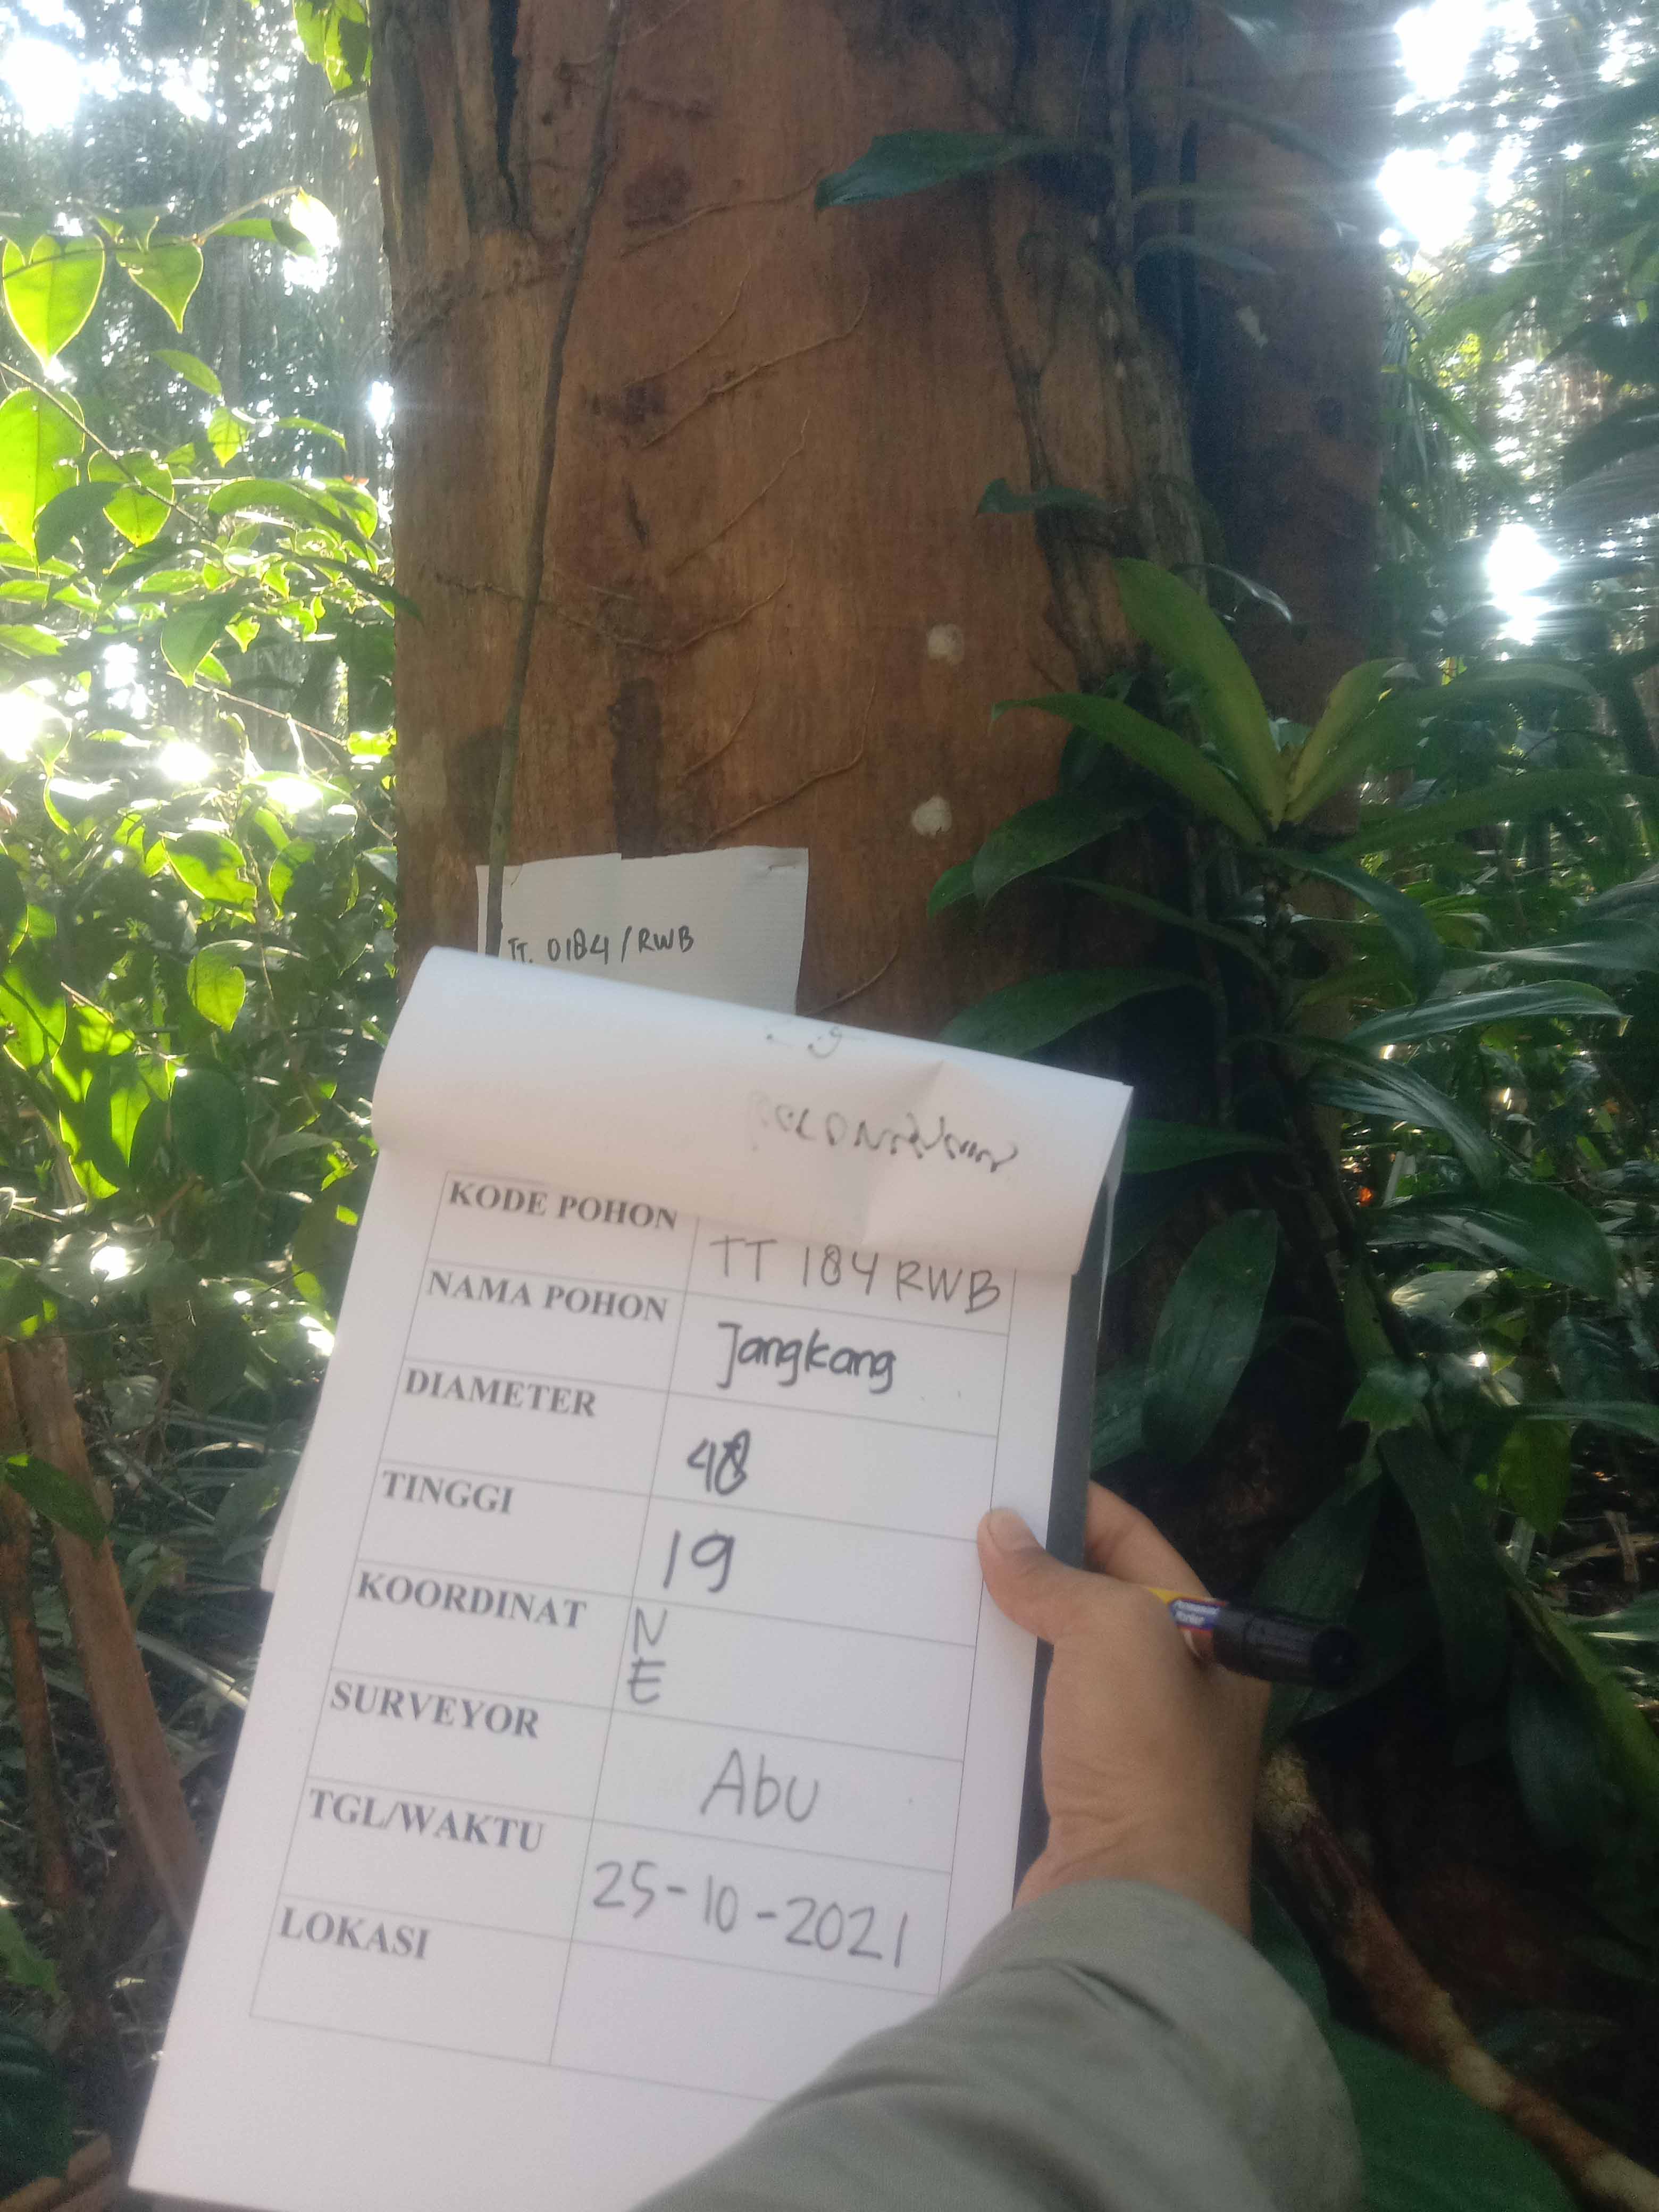 TT. 0184/RWB
KODE POHON TT 184 RWB
NAMA POHON Jangkang
DIAMETER 48
TINGGI 19
KOORDINAT N
E
SURVEYOR Abu
TGL/WAKTU 25-10-2021
LOKASI
Permanent
Marker